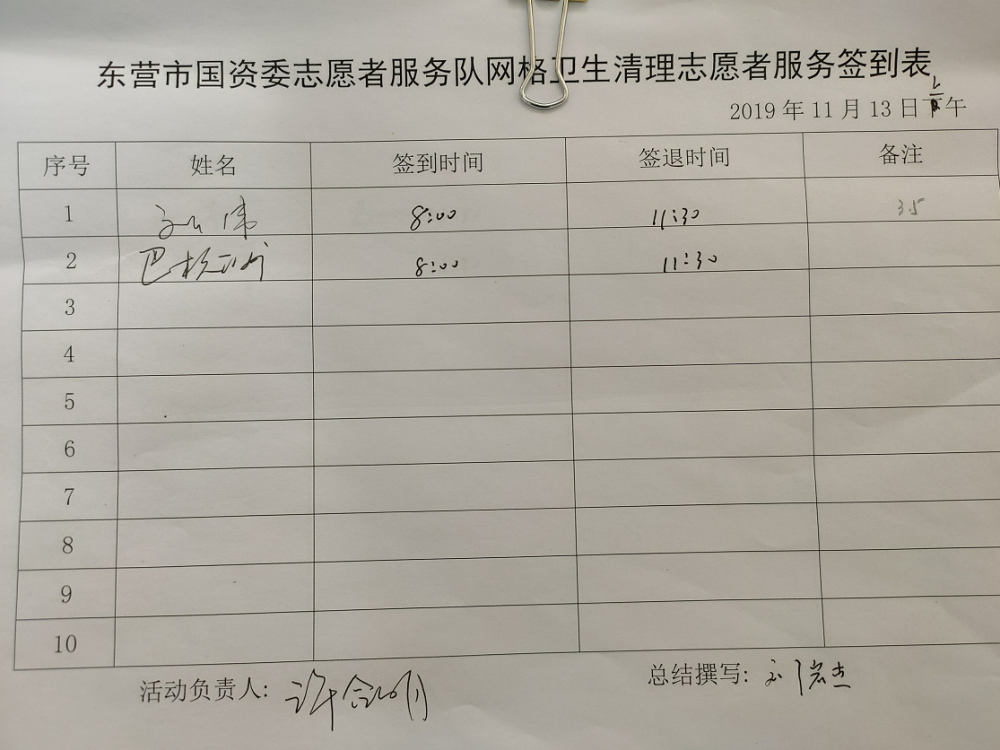 东营市国资委志愿者服务队网格卫生清理志愿者服务签到表
2019 年 11 月 13 日 上午
序号 姓名 签到时间 签退时间 备注
1 伟 8:00 11:30 3.5
2 巴 8:00 11:30
3
4
5
6
7
8
9
10
活动负责人: 许
总结撰写: 刘岩杰